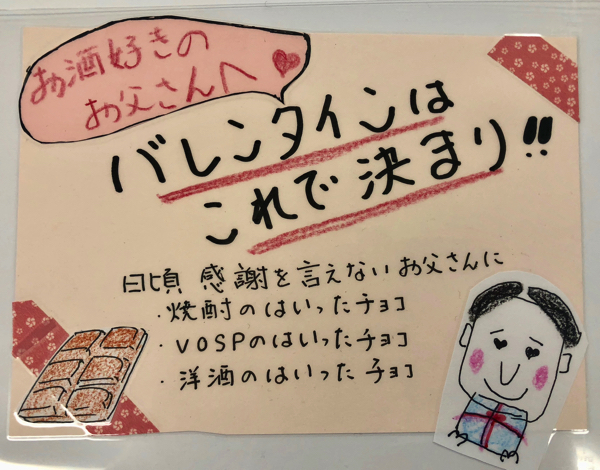 お酒好きの
お父さんへ
バレンタインは
これで決まり!!
日頃 感謝を言えないお父さんに
・焼酎のはいったチョコ
・VOSPのはいったチョコ
・洋酒のはいったチョコ